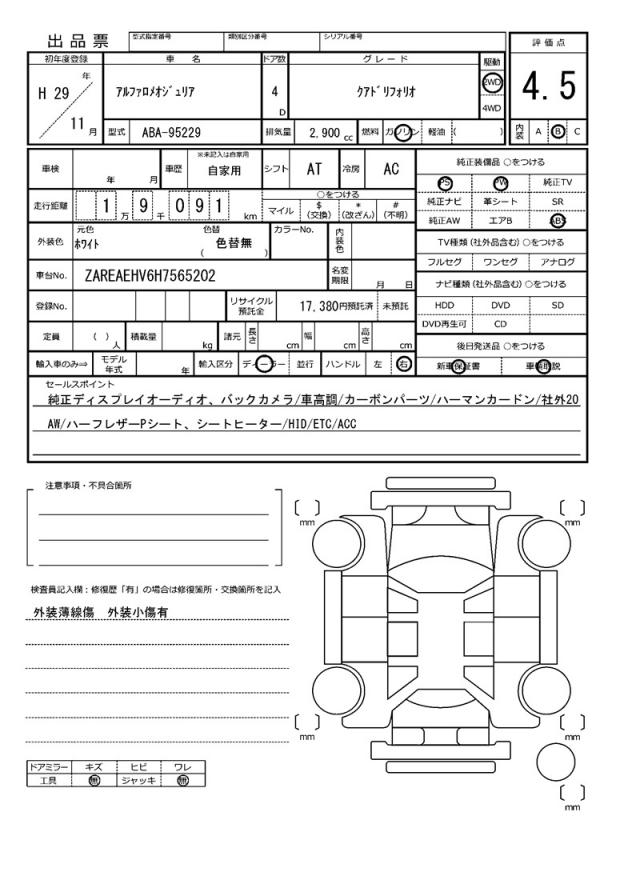 出品票
型式指定番号
類別区分番号
シリアル番号
初年度登録
車 名
ドア数
グレード
駆動
評価点
H 29
年
11
月
アルファロメオジュリア
4
D
クアドリフォリオ
2WD
4WD
4.5
型式
ABA-95229
排気量
2,900 cc
燃料
ガソリン
軽油
( )
内装
A
B
C
車検
年
月
車歴
※未記入は自家用
自家用
シフト
AT
冷房
AC
純正装備品 ○をつける
PS
PW
純正TV
純正ナビ
革シート
SR
純正AW
エアB
ABS
走行距離
1
万
9
千
0
9
1
km
○をつける
マイル
$
(交換)
*
(改ざん)
#
(不明)
外装色
元色
ホワイト
色替
( 色替無 )
カラーNo.
内装色
TV種類 (社外品含む) ○をつける
フルセグ
ワンセグ
アナログ
車台No.
ZAREAEHV6H7565202
名変期限
月
日
ナビ種類 (社外品含む) ○をつける
HDD
DVD
SD
DVD再生可
CD
登録No.
リサイクル預託金
17,380円預託済
未預託
定員
( )
人
積載量
kg
諸元
長さ
cm
幅
cm
高さ
cm
後日発送品 ○をつける
新車保証書
車輌取説
輸入車のみ⇒
モデル年式
年
輸入区分
ディーラー
並行
ハンドル
左
右
セールスポイント
純正ディスプレイオーディオ、バックカメラ/車高調/カーボンパーツ/ハーマンカードン/社外20
AW/ハーフレザーPシート、シートヒーター/HID/ETC/ACC
注意事項・不具合箇所
検査員記入欄：修復歴「有」の場合は修復箇所・交換箇所を記入
外装薄線傷 外装小傷有
ドアミラー
キズ
ヒビ
ワレ
工具
無
ジャッキ
無
mm
mm
mm
mm
mm